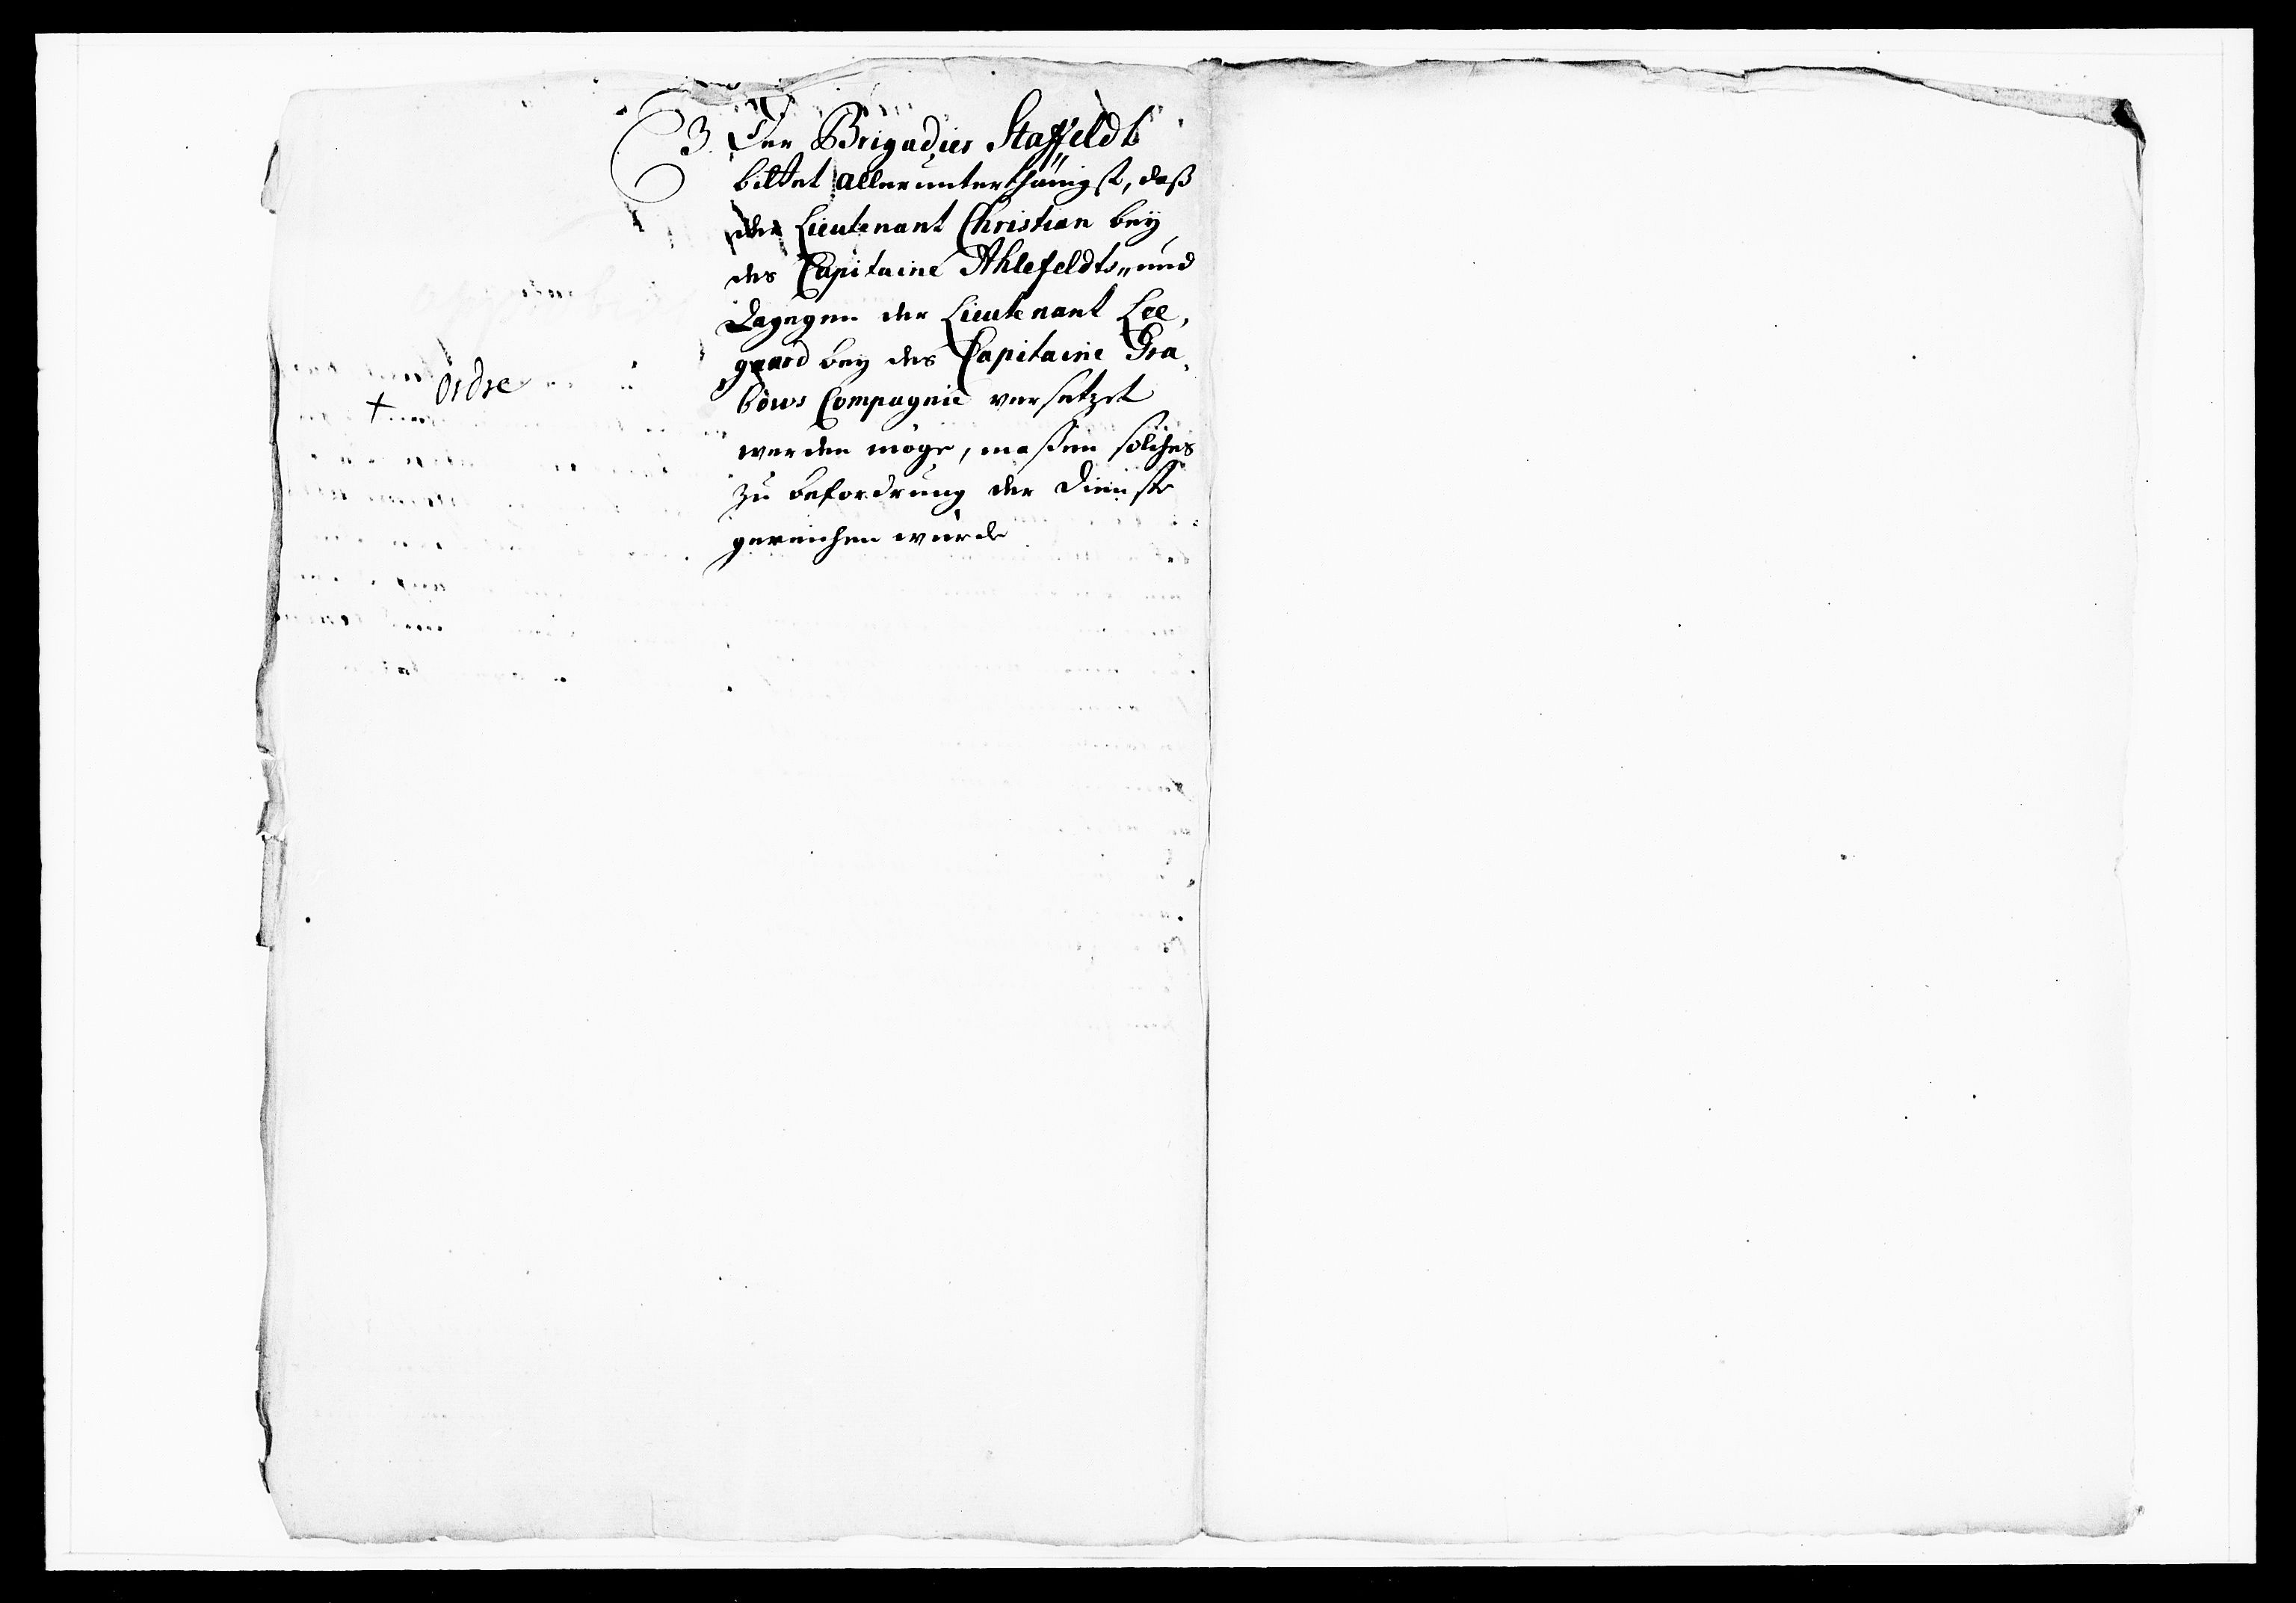 3. Der Brigadier Staffeldt
bittet allerunterthänigst, daß
der Lieutenant Christian bey
des Capitaine Ahlefeldts, und
Dagegen der Lieutenant Lee,
gaard bey des Capitaine Gra,
bows Compagnie versetzet
werden möge, maßen solches
zu befordrung der Dienste
gereichen würde
ordre
+